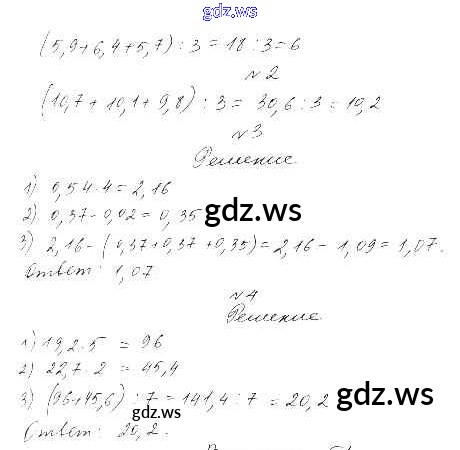 gdz.ws
(5,9+6,4+5,7) : 3 = 18 : 3 = 6
№2
(10,7 + 10,1 + 9,8) : 3 = 30,6 : 3 = 10,2
№3
Решение
1) 0,54·4 = 2,16
2) 0,37 - 0,02 = 0,35
gdz.ws
3) 2,16 - (0,37+0,37+0,35) = 2,16 - 1,09 = 1,07.
Ответ: 1,07
№4
Решение
1) 19,2·5 = 96
2) 22,7·2 = 45,4
3) (96+45,6) : 7 = 141,4 : 7 = 20,2
gdz.ws
gdz.ws
Ответ: 20,2.